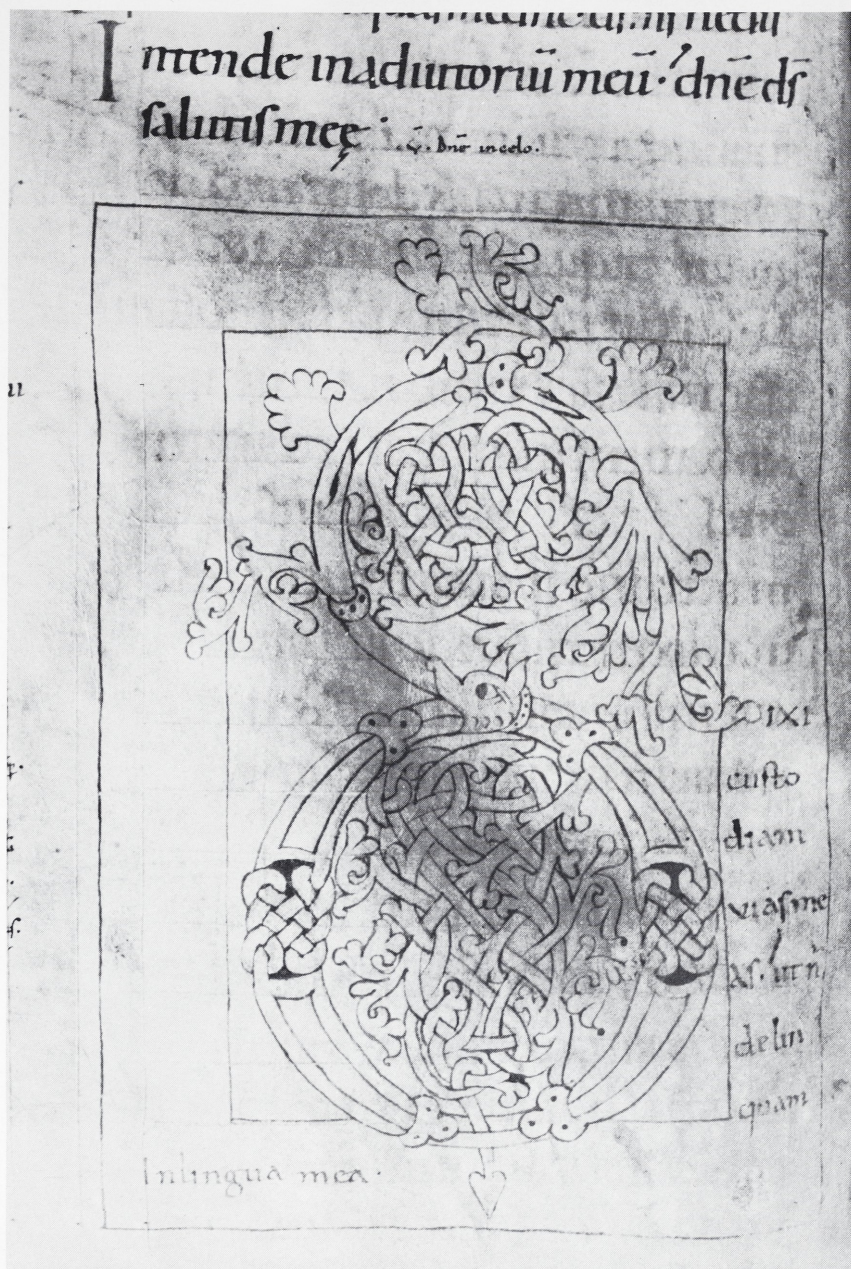 Intende inadiutoriũ meũ·⸍ dn̄e ds̄
salutis meę·
v̄. Dn̄e incelo.
DIXI
custo
diam
vias me
as·⸍ ut ñ
delin
quam
In lingua mea·